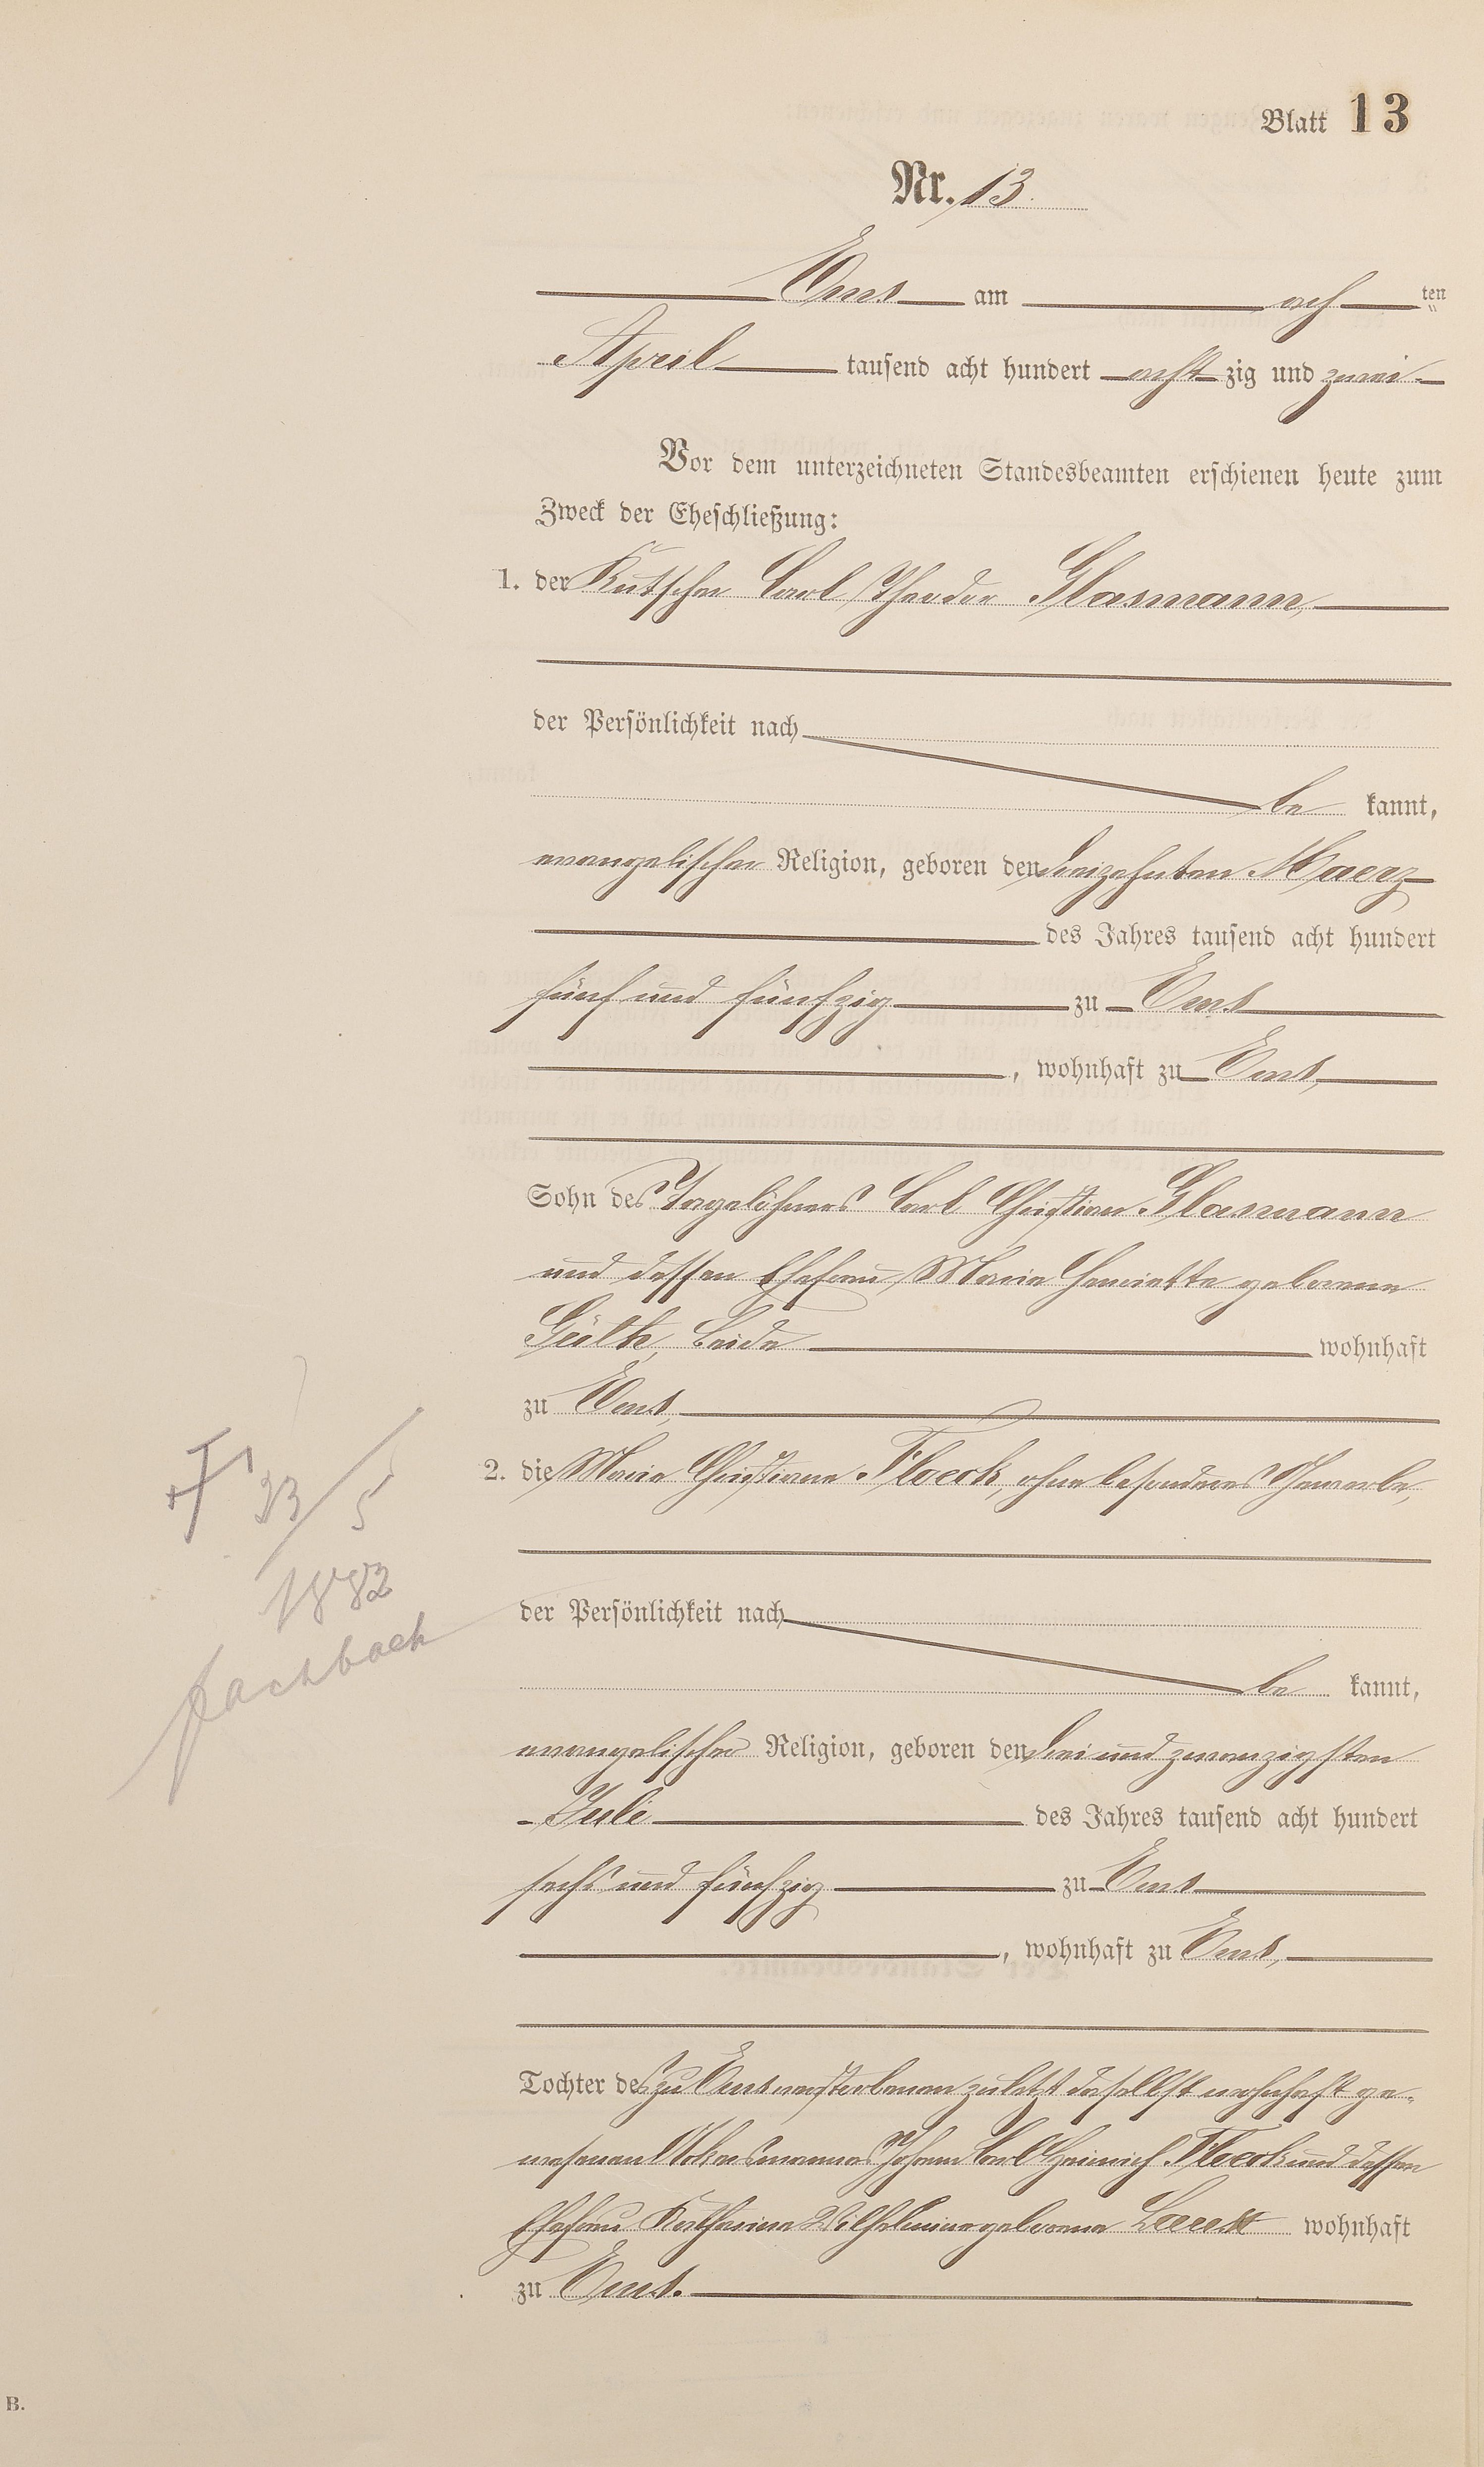 Blatt 13
Nr. 13.
Ems am ach ten
April tausend acht hundert acht zig und zwei
Vor dem unterzeichneten Standesbeamten erschienen heute zum
Zweck der Eheschließung:
1. der Kutscher Carl Theodor Glasmann,
der Persönlichkeit nach
be kannt,
evangelischer Religion, geboren den dreizehnten Maerz
des Jahres tausend acht hundert
fünf und fünfzig zu Ems
, wohnhaft zu Ems,
Sohn des Tagelöhners Carl Christian Glasmann
und dessen Ehefrau, Marie Henriette geborene
beide wohnhaft
zu Ems,
2. die Marie Christiane Flock, ohne besonderes Gewerbe,
† 23/5
1882
Fachbach
der Persönlichkeit nach
be kannt,
evangelischer Religion, geboren den drei und zwanzigsten
Juli des Jahres tausend acht hundert
sechs und fünfzig zu Ems
, wohnhaft zu Ems,
Tochter des zu Ems verstorbenen zuletzt daselbst wohnhaft ge-
wesenen Ackersmannes Johann Carl Heinrich Flock und dessen
Ehefrau Katharine Wilhelmine geborene wohnhaft
zu Ems.
B.